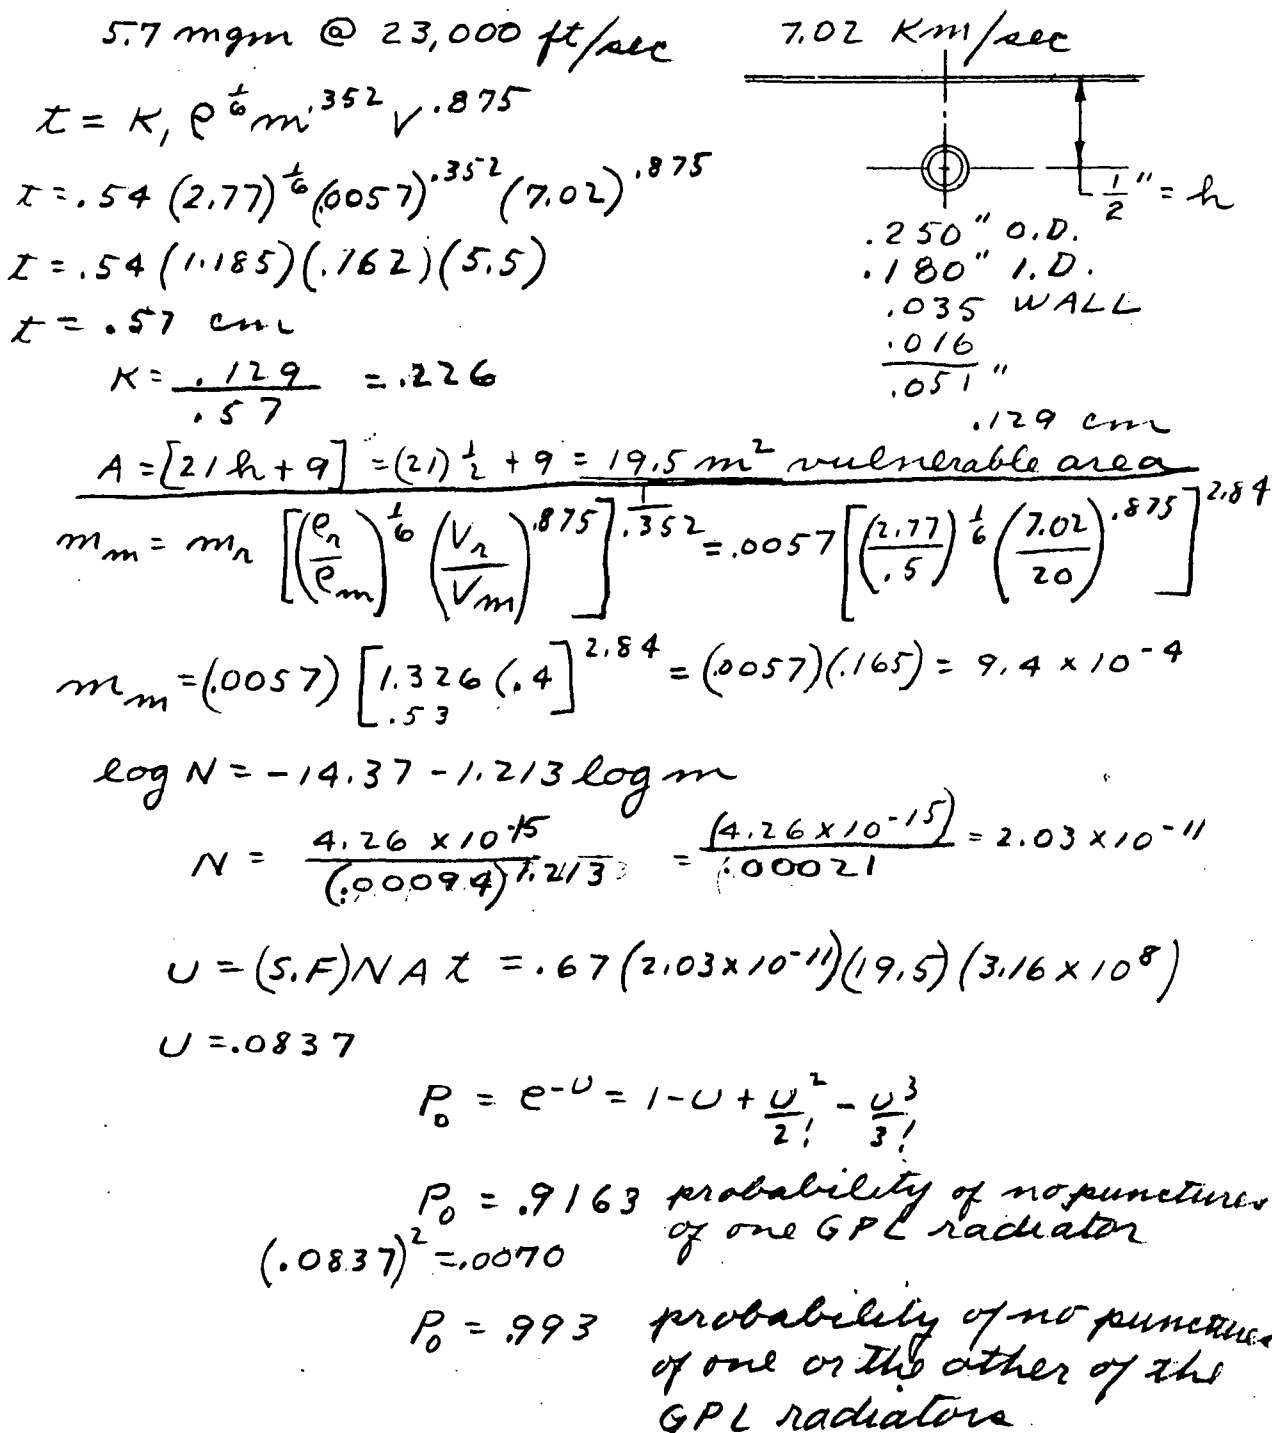 5.7 mgm @ 23,000 ft/sec 7.02 Km/sec
t = K, ρ^1/6 m^.352 V^.875
t = .54 (2.77)^1/6 (.0057)^.352 (7.02)^.875
1/2" = h
t = .54 (1.185)(.162)(5.5)
t = .57 cm
.250" O.D.
.180" I.D.
.035 WALL
.016
.051"
.129 cm
K = .129/.57 = .226
A = [21h + 9] = (21) 1/2 + 9 = 19.5 m² vulnerable area
m_m = m_r [(ρ_r/ρ_m)^1/6 (V_r/V_m)^.875]^1/.352 = .0057 [(2.77/.5)^1/6 (7.02/20)^.875]^2.84
m_m = (.0057) [1.326 (.4]^2.84 = (.0057)(.165) = 9.4 x 10^-4
.53
log N = -14.37 - 1.213 log m
N = 4.26 x 10^-15/(.00094)^1.213 = (4.26 x 10^-15)/.00021 = 2.03 x 10^-11
U = (S.F) N A t = .67 (2.03 x 10^-11)(19.5)(3.16 x 10^8)
U = .0837
P_0 = e^-U = 1 - U + U²/2! - U³/3!
P_0 = .9163 probability of no punctures
of one GPL radiator
(.0837)² = .0070
P_0 = .993 probability of no punctures
of one or the other of the
GPL radiators